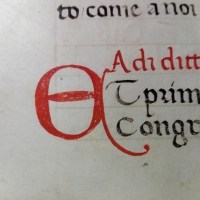 to come a noi
A di ditt
E T prim
Congr